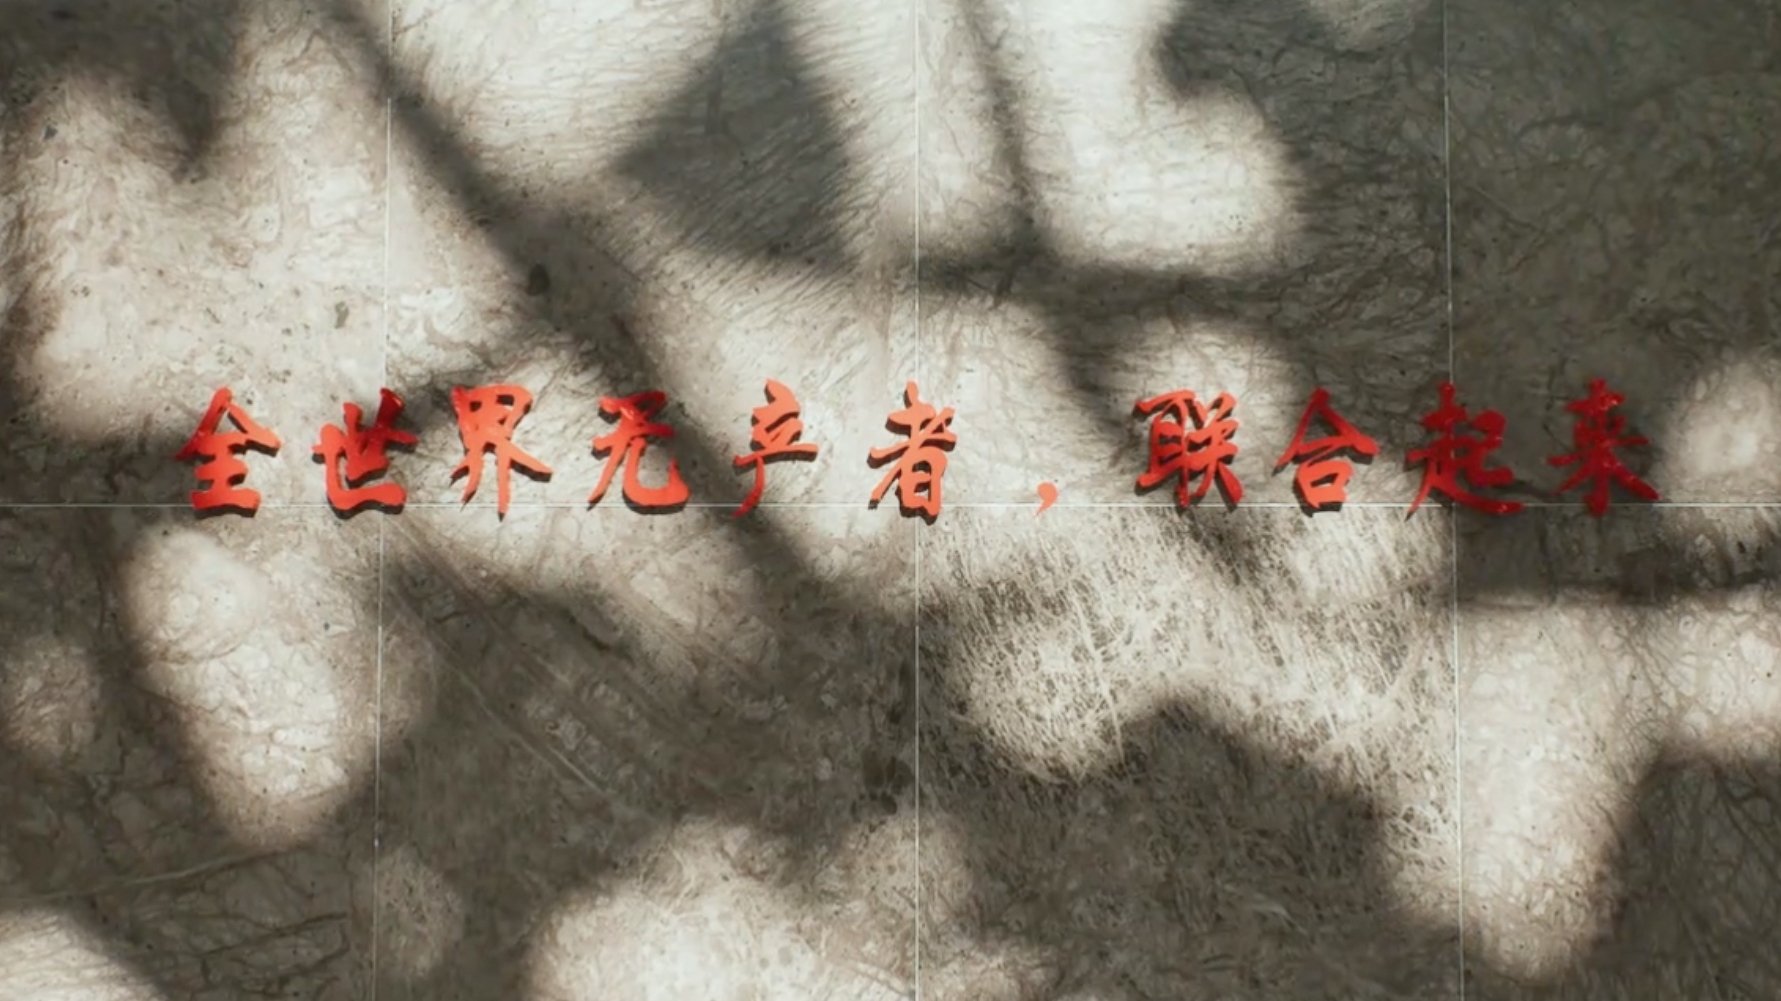 全世界无产者，联合起来